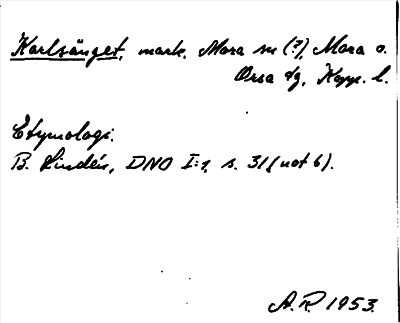 Karlsänget, mark, Mora sn (?), Mora o.
Orsa dg, Kopp. l.
Etymologi.
B. Lindén, DNO I:1, s. 31 (not 6).
A.R. 1953.